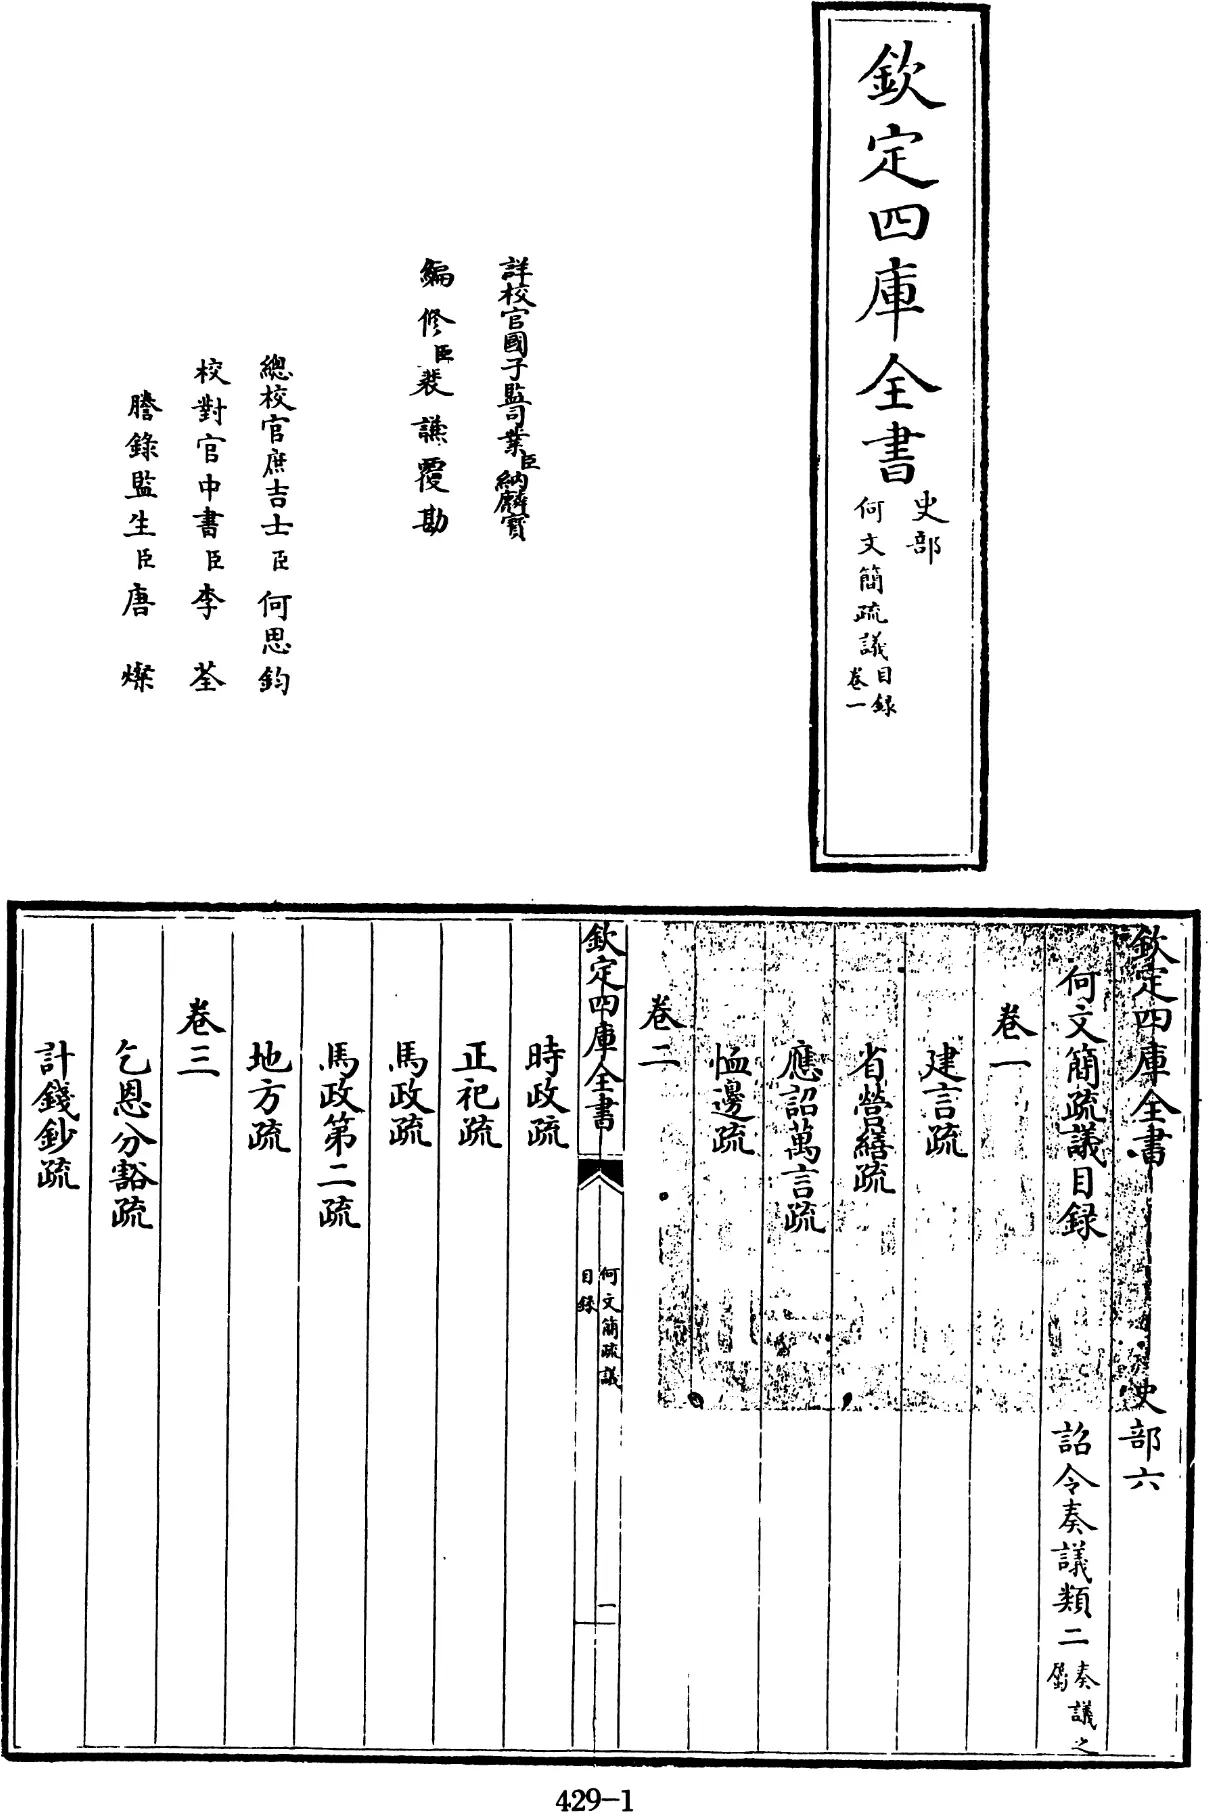 欽定四庫全書
史部
何文簡疏議目録
卷一
詳校官國子監司業臣納麟寶
編修臣裴謙覆勘
總校官庶吉士臣何思鈞
校對官中書臣李荃
謄錄監生臣唐燦
欽定四庫全書
史部六
何文簡疏議目録
詔令奏議類二奏議之屬
卷一
建言疏
省營繕疏
應詔萬言疏
恤邊疏
卷二
欽定四庫全書
何文簡疏議
目録
一
時政疏
正祀疏
馬政疏
馬政第二疏
地方疏
卷三
乞恩分豁疏
計錢鈔疏
429-1